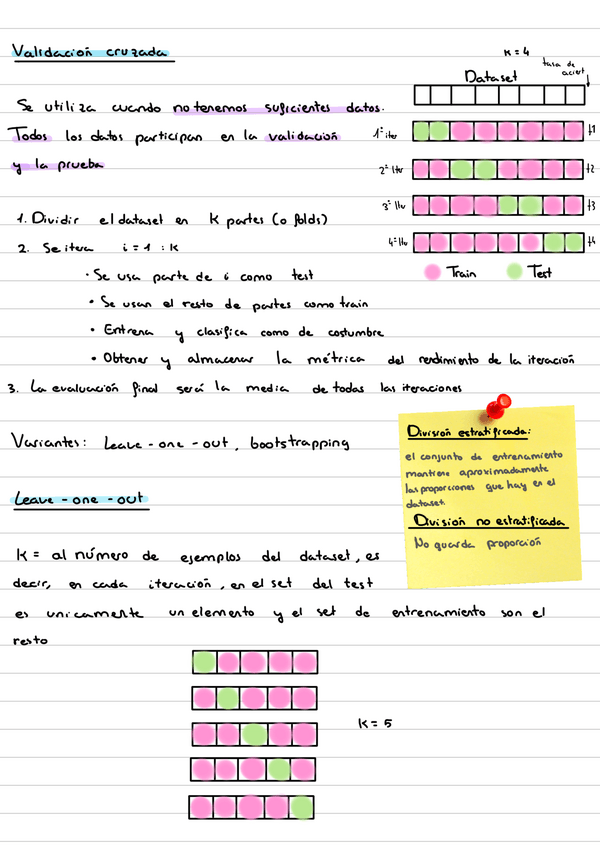 Validación cruzada
K = 4
tasa de
aciert
Dataset
Se utiliza cuando no tenemos suficientes datos.
Todos los datos participan en la validación
y la prueba
1ª iter
f1
2ª Iter
f2
3ª Iter
f3
4ª Iter
f4
Train
Test
1. Dividir el dataset en K partes (o folds)
2. Se itera i = 1 : K
· Se usa parte de i como test
• Se usan el resto de partes como train
• Entrena y clasifica como de costumbre
• Obtener y almacenar la métrica del rendimiento de la iteración
3. La evaluación final será la media de todas las iteraciones
Variantes: Leave - one - out, bootstrapping
División estratificada:
el conjunto de entrenamiento
mantiene aproximadamente
las proporciones que hay en el
dataset
División no estratificada
No guarda proporción
Leave - one - out
K = al número de ejemplos del dataset, es
decir, en cada iteración, en el set del test
es unicamente un elemento y el set de entrenamiento son el
resto
K = 5